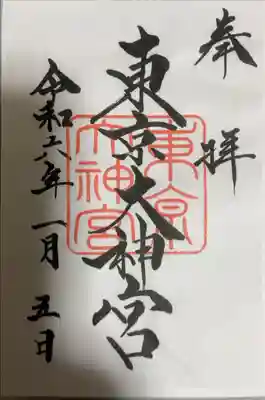 奉拝
東京大神宮
東京大神宮
令和六年一月五日